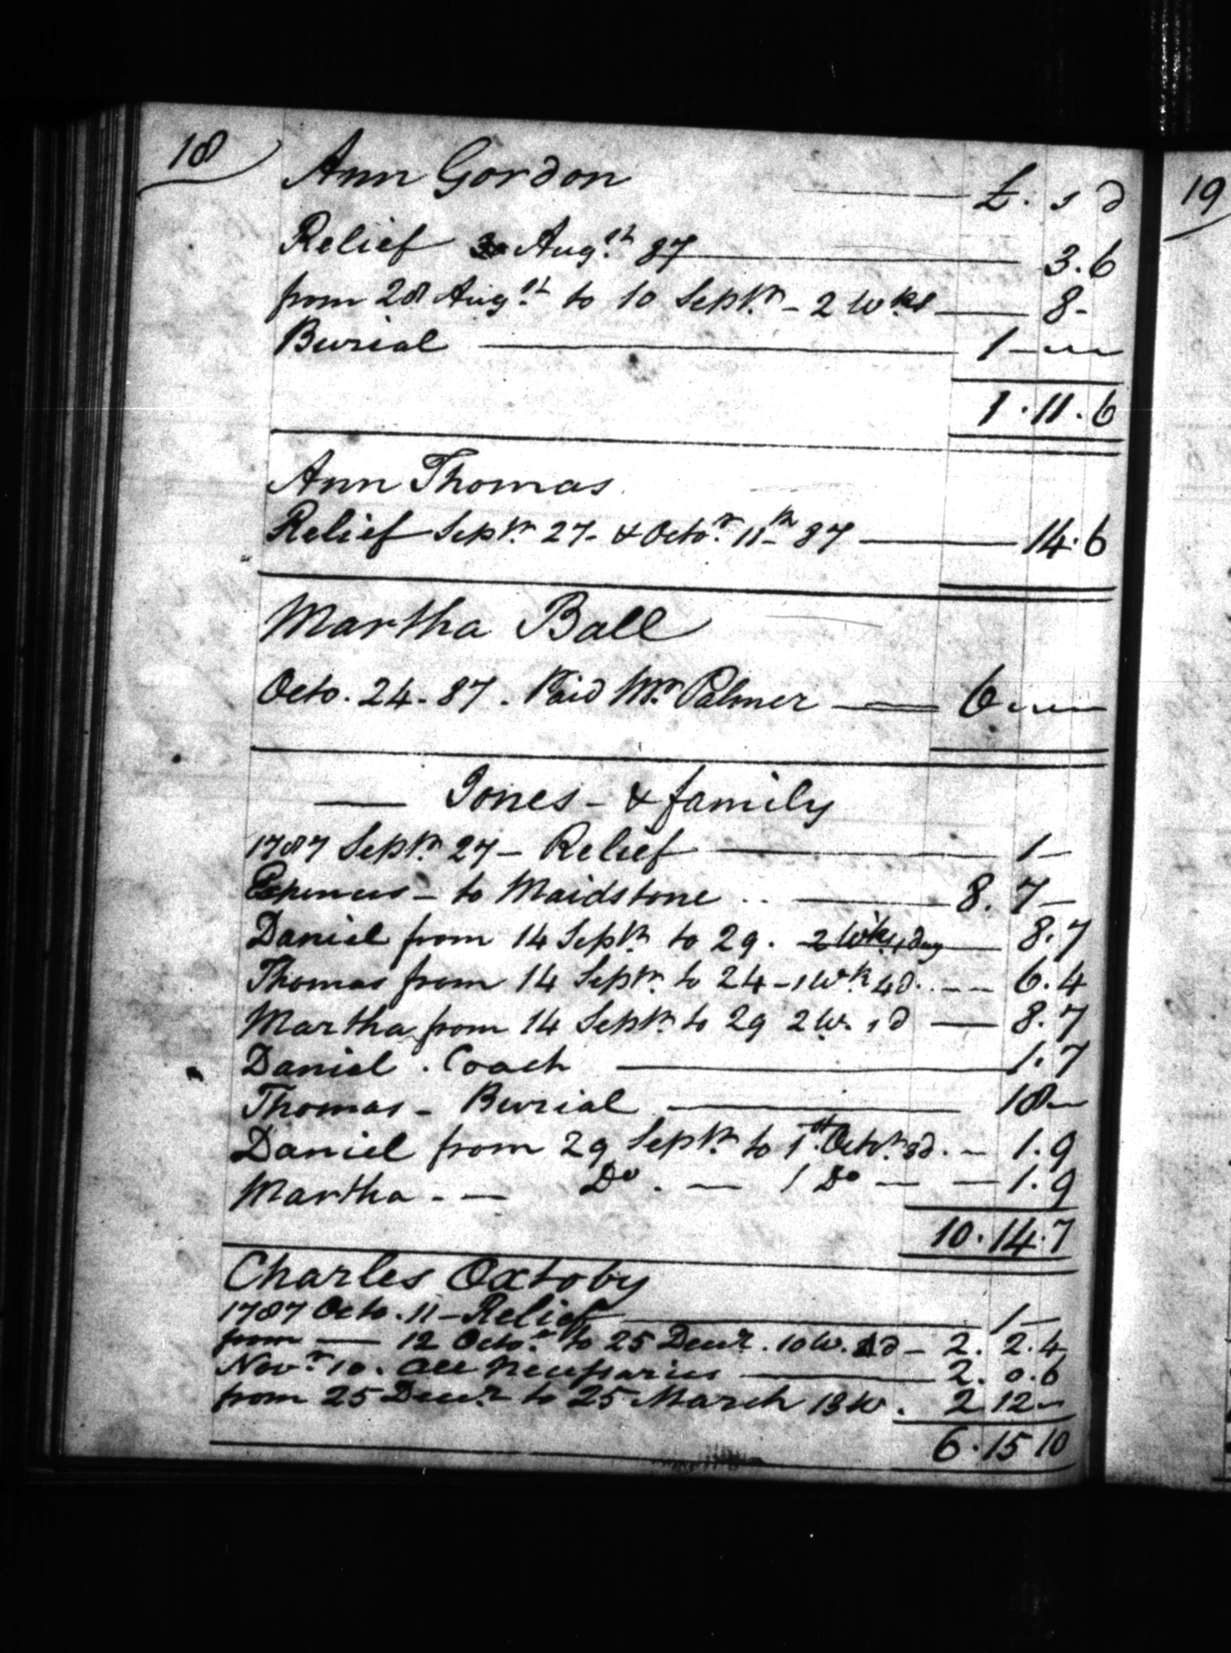 18
Ann Gordon £. s d
Relief 30 Augst. 87 3.6
from 28 Augst. to 10 Septr. - 2 Wks 8-
Burial 1 - ,, ,,
1.11.6
Ann Thomas
Relief Septr. 27- & Octor. 11th 87 14.6
Martha Ball
Octo. 24-87. Paid Mr. Palmer 6 ,, ,,
Jones - & family
1787 Septr. 27 - Relief 1 -
Expences - to Maidstone .. 8. 7 -
Daniel from 14 Septr. to 29. 2 Wks 1 day 8.7
Thomas from 14 Septr. to 24 - 1 Wk 4d. 6.4
Martha from 14 Septr. to 29 2W. 1d 8.7
Daniel . Coach 1.7
Thomas - Burial 18 -
Daniel from 29 Septr. to 1st. Octr. 3d. - 1.9
Martha - - Do. - / Do - 1.9
10.14.7
Charles Oxtoby
1787 Octo. 11 - Relief 1 -
from 12 Octor. to 25 Decr. 10W. d - 2. 2.4
Novr. 10. all necessaries 2. 0.6
from 25 Decr. to 25 March 13W. 2 12 -
6.15 10
19